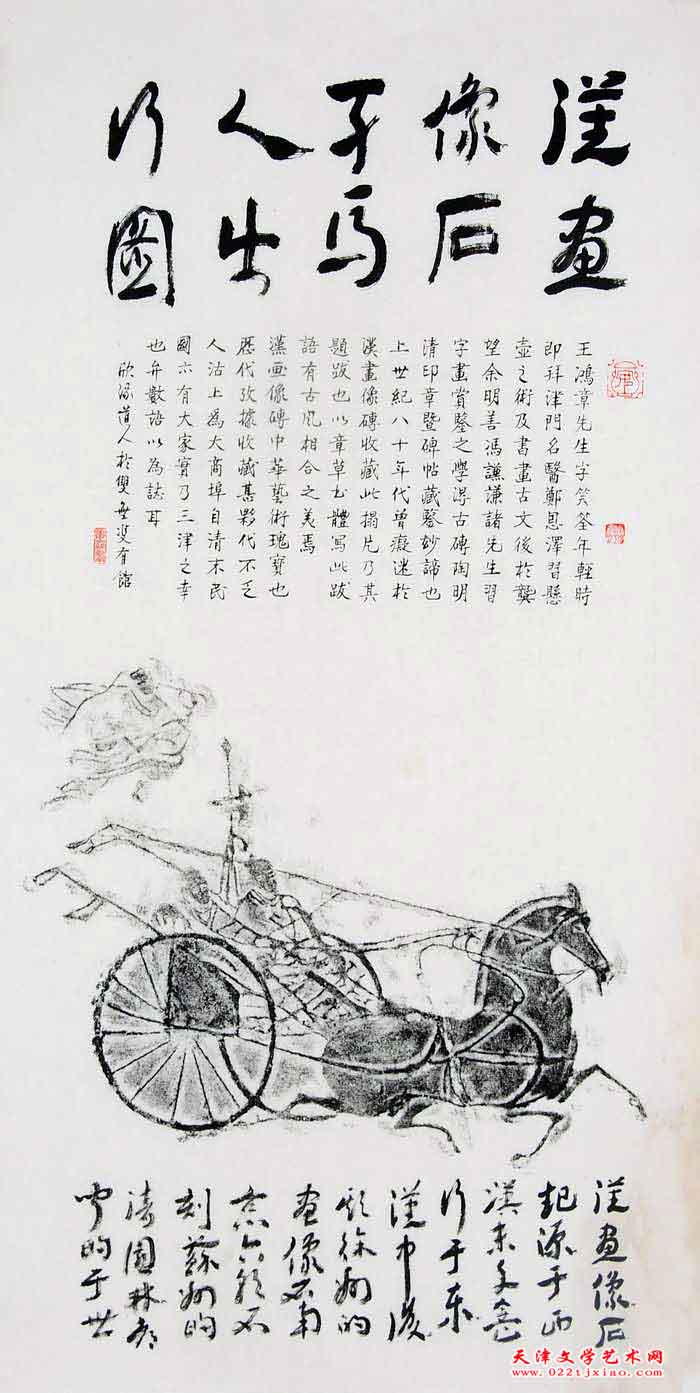 漢画
像石
车馬
人出
行圖
王鴻章先生字笑荃年輕時
即拜津門名醫鄭恩澤習懸
壺之術及書畫古文後於龔
望余明善馮謙謙諸先生習
字畫賞鑒之學溿古磚陶明
清印章暨碑帖藏鑒妙諦也
上世紀八十年代曾癡迷於
漢畫像磚收藏此搨片乃其
題跋也以章草書體寫此跋
語有古風相合之美焉
漢画像磚中華藝術瑰寶也
歷代攷據收藏甚夥代不乏
人沽上為大商埠自清末民
國六有大家實乃三津之幸
也弁數語以為誌耳
欣添道人於雙百有舘
漢画像石
起源于西
漢末
行于東
漢中後
期徐州的
画像石南
刻蘇州的
園林
于世
天津文学艺术网
www.022tjxiao.com